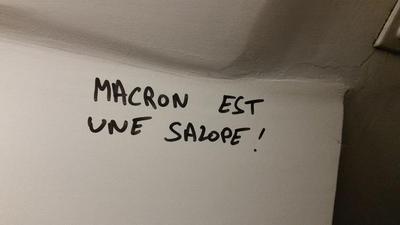 MACRON EST
UNE SALOPE !